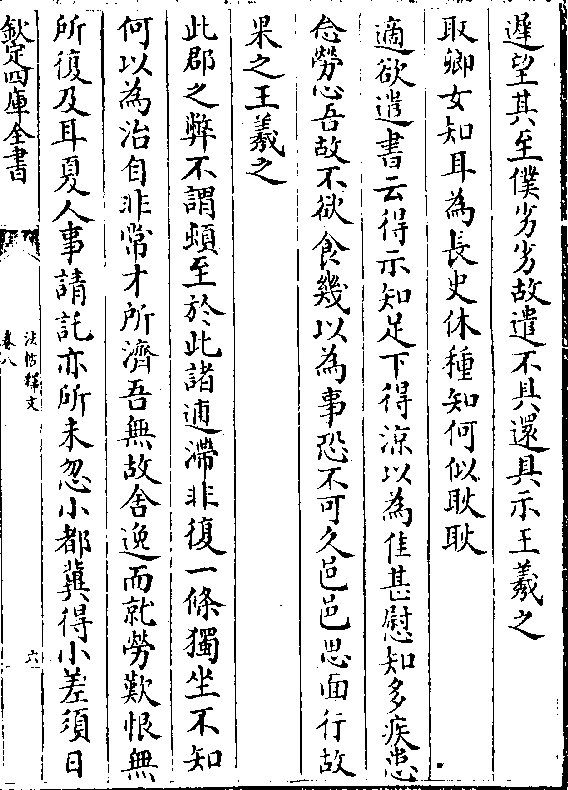 遲望其至僕劣劣故遣不具還具示王羲之
取卿女知耳為長史休種知何似耿耿
適欲遣書云得示知足下得涼以為佳甚慰知多疾患
念勞心吾故不欲食幾以為事恐不可久邑邑思面行故
果之王羲之
此郡之弊不謂頓至於此諸逋滯非復一條獨坐不知
何以為治自非常才所濟吾無故舍逸而就勞歎恨無
所復及耳夏人事請託亦所未忽小都冀得小差須日
欽定四庫全書
法帖釋文
卷八
六